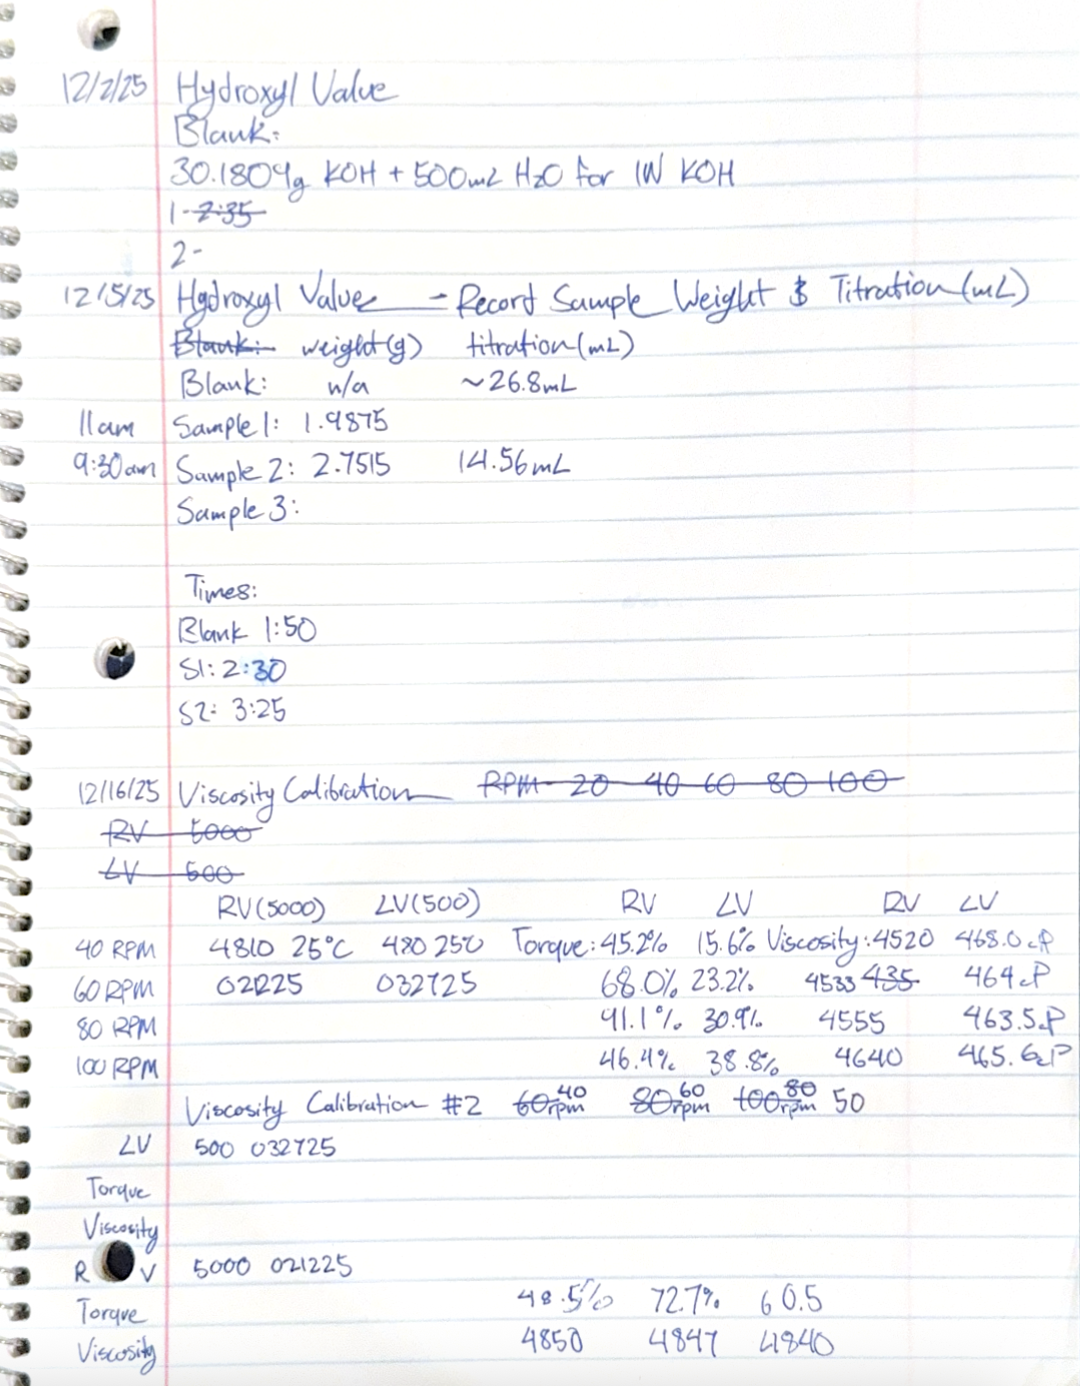 12/2/25 Hydroxyl Value
Blank:
30.1809g KOH + 500mL H2O for 1N KOH
1- 2:35
2-
12/15/25 Hydroxyl Value - Record Sample Weight & Titration (mL)
Blank: weight(g) titration(mL)
Blank: n/a ~26.8mL
11am Sample 1: 1.9875
9:30am Sample 2: 2.7515 14.56mL
Sample 3:
Times:
Blank 1:50
S1: 2:30
S2: 3:25
12/16/25 Viscosity Calibration RPM 20 40 60 80 100
RV 5000
LV 500
RV(5000) LV(500) RV LV RV LV
40 RPM 4810 25°C 480 25C Torque: 45.2% 15.6% Viscosity: 4520 468.0cP
60 RPM 021225 032725 68.0% 23.2% 4533 435 464cP
80 RPM 91.1% 30.9% 4555 463.5cP
100 RPM 46.4% 38.8% 4640 465.6cP
Viscosity Calibration #2 60rpm 40 80rpm 60 100rpm 80 50
LV 500 032725
Torque
Viscosity
RV 5000 021225
Torque 48.5% 72.7% 60.5
Viscosity 4850 4847 4840